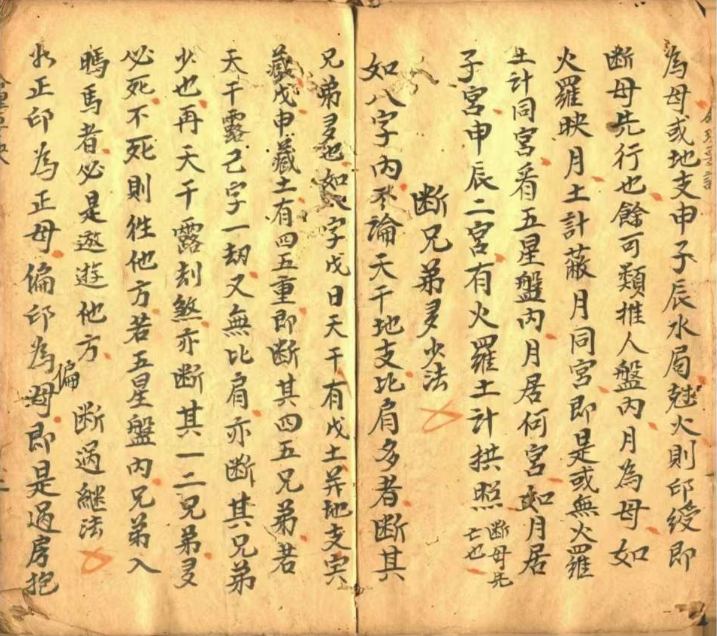 為母或地支申子辰水局尅火則印綬即
断母先行也餘可類推人盤內月為母如
火羅映月土計蔽月同宮即是或無火羅
土計同宮看五星盤內月居何宮如月居
子宮申辰二宮有火羅土計拱照断母先亡也
断兄弟多少法
如八字內不論天干地支比肩多者断其
兄弟多也如八字戊日天干有戊土并地支寅
藏戊申藏土有四五重即断其四五兄弟若
天干露己字一劫又無比肩亦断其兄弟
少也再天干露刦煞亦断其一二兄弟多
必死不死則徃他方若五星盤內兄弟入
馬者必是遨遊他方
断過継法
正印為正母偏印為偏母即是過房抱